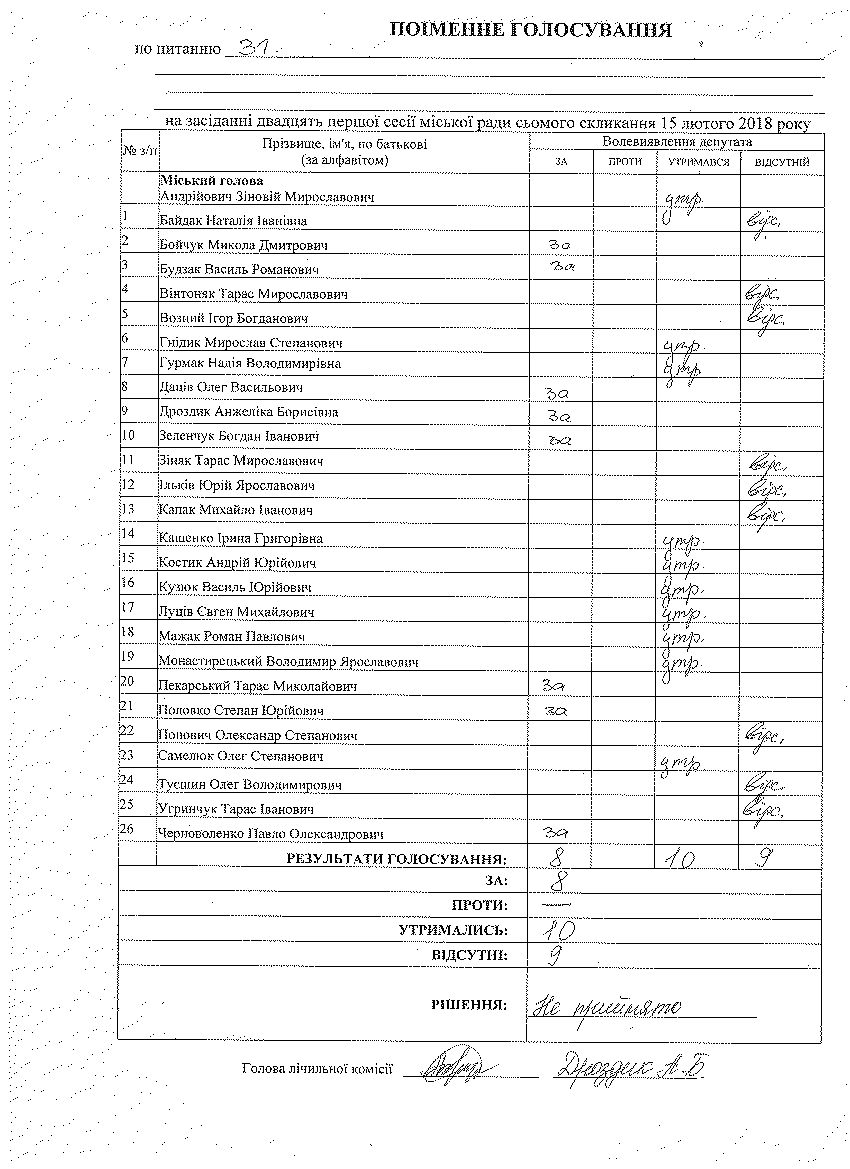 ПОІМЕННЕ ГОЛОСУВАННЯ
по питанню 31.
на засіданні двадцять першої сесії міської ради сьомого скликання 15 лютого 2018 року
№ з/п Прізвище, ім'я, по батькові (за алфавітом) Волевиявлення депутата
ЗА ПРОТИ УТРИМАВСЯ ВІДСУТНІЙ
Міський голова
Андрійович Зіновій Мирославович утр.
1 Байдак Наталія Іванівна відс.
2 Бойчук Микола Дмитрович За
3 Будзак Василь Романович За
4 Вінтоняк Тарас Мирославович відс.
5 Возний Ігор Богданович відс.
6 Гнідик Мирослав Степанович утр.
7 Гурмак Надія Володимирівна утр
8 Даців Олег Васильович За
9 Дроздик Анжеліка Борисівна За
10 Зеленчук Богдан Іванович За
11 Зіняк Тарас Мирославович відс.
12 Ільків Юрій Ярославович відс.
13 Капак Михайло Іванович відс.
14 Кащенко Ірина Григорівна утр.
15 Костик Андрій Юрійович утр.
16 Кузюк Василь Юрійович утр.
17 Луців Євген Михайлович утр.
18 Мажак Роман Павлович утр.
19 Монастирецький Володимир Ярославович утр.
20 Пекарський Тарас Миколайович За
21 Половко Степан Юрійович За
22 Попович Олександр Степанович відс.
23 Самелюк Олег Степанович утр.
24 Олег Володимирович відс.
25 Угринчук Тарас Іванович відс.
26 Черноволенко Павло Олександрович За
РЕЗУЛЬТАТИ ГОЛОСУВАННЯ: 8 10 9
ЗА: 8
ПРОТИ: —
УТРИМАЛИСЬ: 10
ВІДСУТНІ: 9
РІШЕННЯ: Не прийнято
Голова лічильної комісії Дроздик А.Б